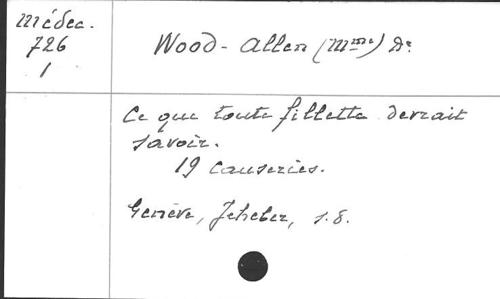 Médec.
726
1
Wood-Allen (Mme) Dr
Ce que toute fillette devrait
savoir.
19 causeries.
Genève, Jeheber, s.d.